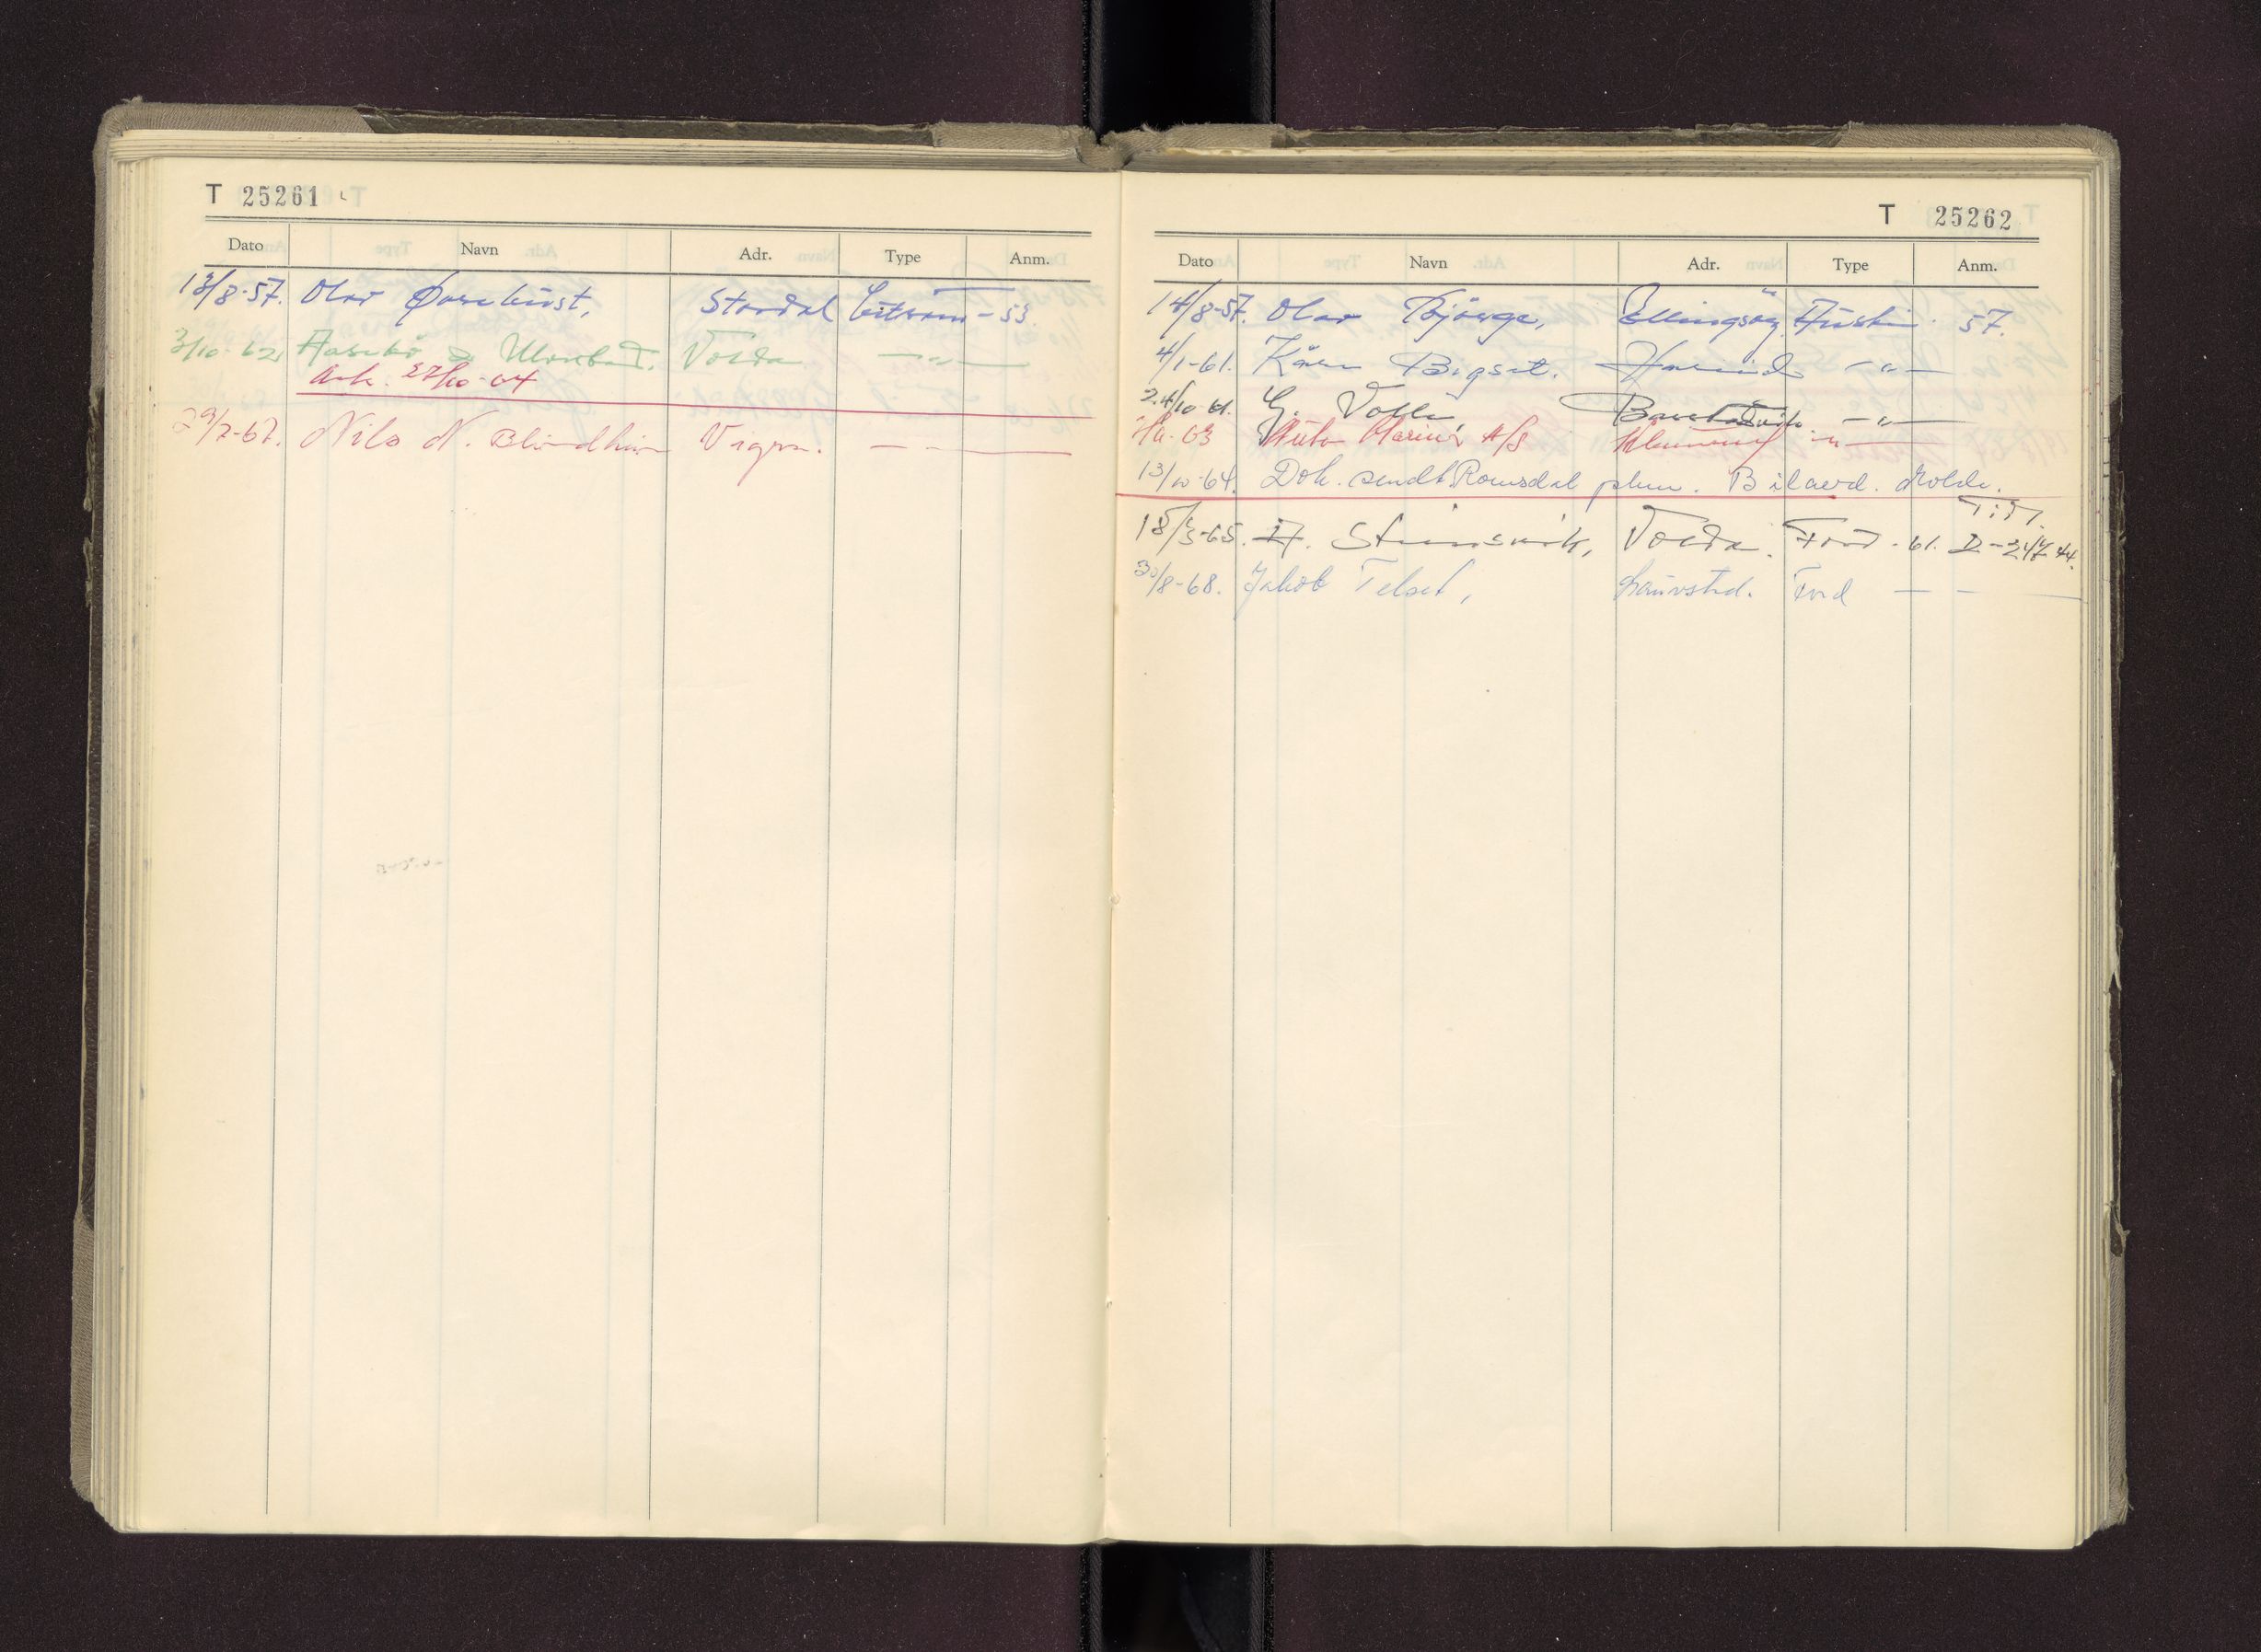 T 25261
Dato Navn Adr. Type Anm.
13/8-57. Olav Stordal Citroen - 53
3/10-62 Aasebø & Volda - " -
Avh. 27/10-64
29/7-67. Nils N. Blindheim Vigra. - - -
T 25262
Dato Navn Adr. Type Anm.
14/8-57. Olav Bjørge, Ellingsøy Austin 57.
4/1-61. Kåre Bigset. Hareid - " -
24/10 61. - " -
63 Auto Marina A/S - " -
13/10-64. Dok. sendt Romsdal Bilavd. Molde.
18/3-65. H. Steinsvik, Volda. Ford - 61. D-24744.
30/8-68. Jakob Telset, Lauvstad. Ford - -